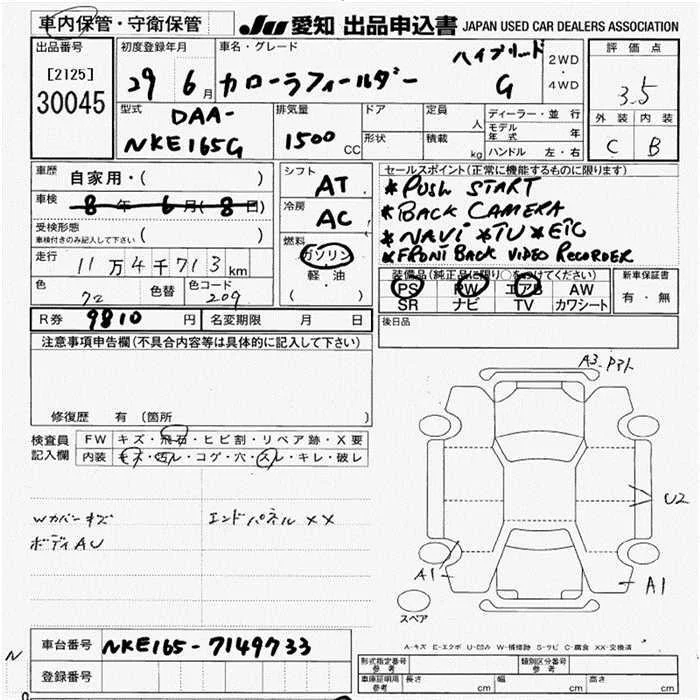 車内保管・守衛保管
JU 愛知 出品申込書 JAPAN USED CAR DEALERS ASSOCIATION
出品番号
[2125]
30045
初度登録年月
29 6月
車名・グレード
カローラフィールダー
ハイブリード
G
2WD
・
4WD
評価点
3.5
外装 内装
C B
型式
DAA-
NKE165G
排気量
1500 CC
ドア
形状
定員 人
積載 kg
ディーラー・並行
モデル年式 年
ハンドル 左・右
車歴 自家用・( )
車検 8年 6月(8日)
受検形態
車検付きのみ記入して下さい ( )
走行 11万4千713km
色
色替
色コード
209
シフト AT
冷房 AC
燃料
ガソリン
軽・油
( )
セールスポイント(正常に機能するものに限ります)
*PUSH START
*BACK CAMERA
*NAVI *TV *ETC
*FRONT BACK VIDEO RECORDER
装備品(純正品に限り○をつけてください)
PS PW エアB AW
SR ナビ TV カワシート
新車保証書
有・無
R券 9810円
名変期限 月 日
後日品
注意事項申告欄(不具合内容等は具体的に記入して下さい)
修復歴 有 (箇所
検査員
記入欄
FW キズ・飛石・ヒビ割・リペア跡・X要
内装 キズ・汚レ・コゲ・穴・スレ・キレ・破レ
Wカバーキズ
ボディAU
エンドパネルXX
A3
U2
A1
A1
スペア
A-キズ E-エクボ U-凹み W-補修跡 S-サビ C-腐食 XX-交換済
車台番号 NKE165-7149733
登録番号
N
形式指定番号
参考
類別区分番号
参考
車庫証明用
参考
長さ cm
幅 cm
高さ cm